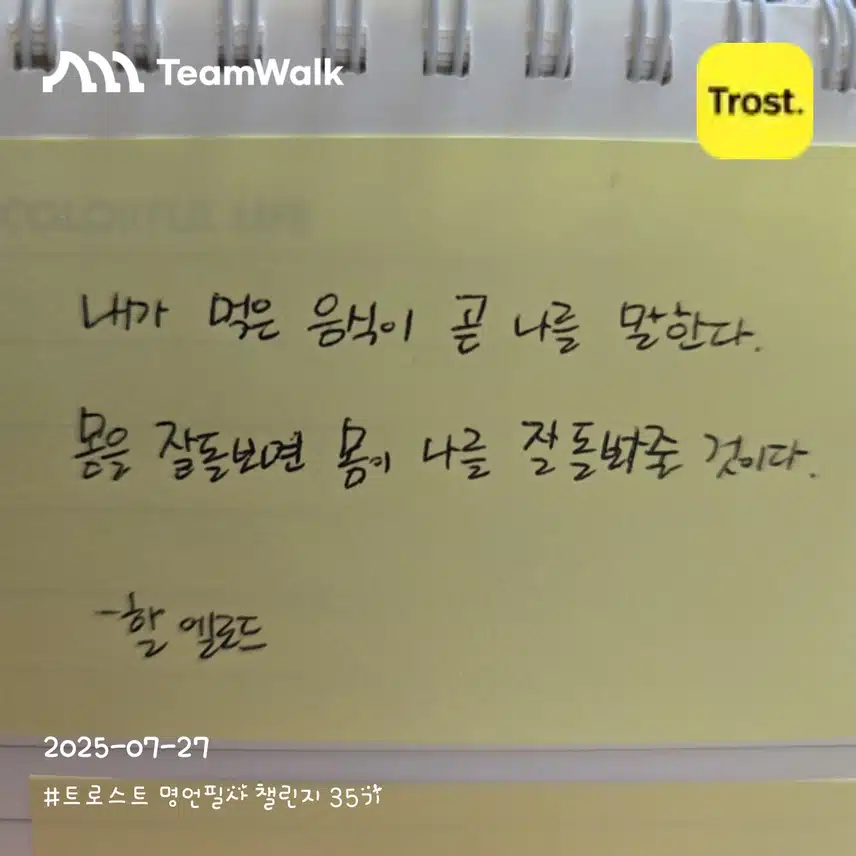 TeamWalk
Trost.
내가 먹은 음식이 곧 나를 말한다.
몸을 잘돌보면 몸이 나를 잘 돌봐줄 것이다.
-할 엘로드
2025-07-27
#트로스트 명언필사 챌린지 35일차